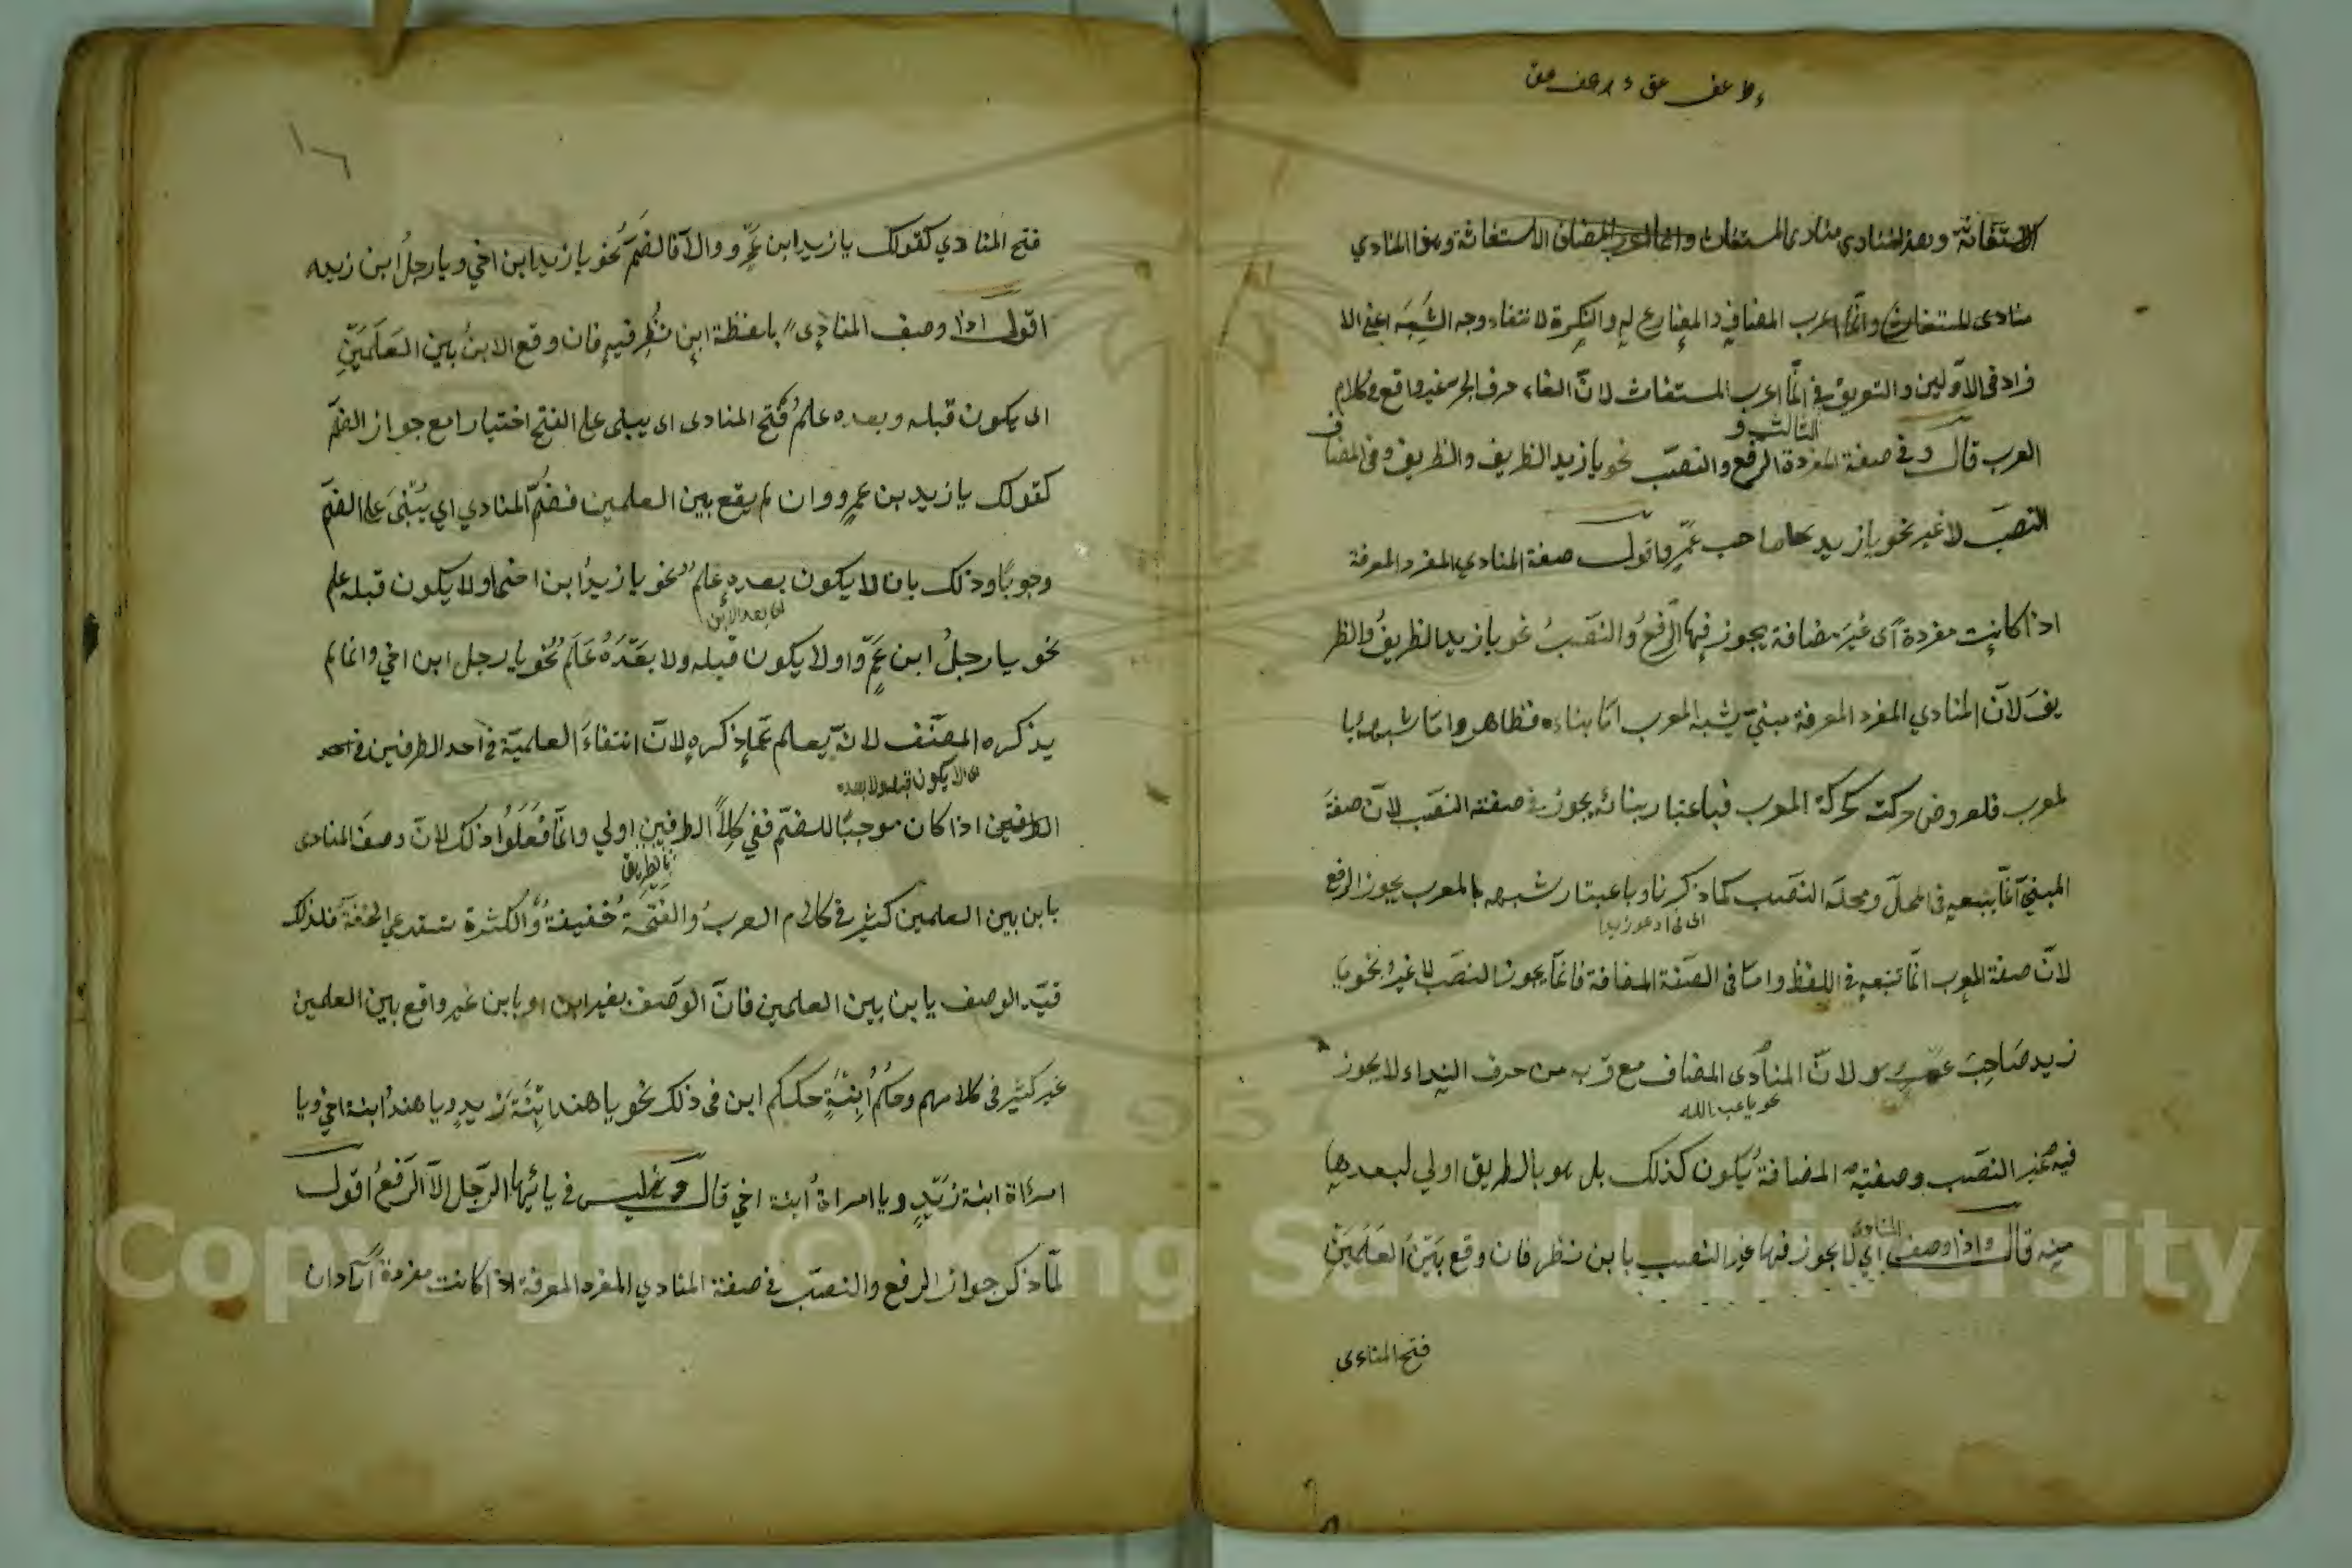 الاستغاثة وبعد المنادى منادى المستغاث الاستغاثة وهو المنادي
منادى المستغاث وانّما اعرب المضاف والمضارع له والنكرة لانتفاء وجه الشبه اعني الا
فراد في الاوّلين والتعريف في انّما اعرب المستغاث لانّ الغاء حرف الجر غير واقع في كلام
العرب قال وفي صفة المفردة الرفع والنصب نحو يا زيد الظريف والظريف وفى المضاف
النصب لا غير نحو يا زيد صاحب عمرو اقول صفة المنادي المفرد المعرفة
اذا كانت مفردة اى غير مضافة يجوز فيها الرفع والنصب نحو يا زيد الظريف والظر
يف لانّ المنادي المفرد المعرفة مبنيّ يشبه المعرب امّا بناءه فظاهر وامّا شبهه با
لمعرب فلعروض حركته كحركة المعرب فباعتبار بنائه يجوز في صفته النصب لانّ صفة
المبني انّما يتبعه في المحلّ ومحله النصب كما ذكرنا وباعتبار شبهه بالمعرب يجوز الرفع
اى في ادعو زيدا
لانّ صفة المعرب انّما تتبعه في اللفظ وامّا فى الصفة المضافة فانّما يجوز النصب لا غير نحو يا
زيد صاحب عمرو لانّ المنادى المضاف مع قربه من حرف النداء لا يجوز
نحو يا عبد الله
فيه غير النصب وصفته المضافة يكون كذلك بل هو بالطريق اولي لبعدها
منه قال واذا وصف المنادى اي لا يجوز فيها غير النصب بابن نظر فان وقع بين العلمين
فتح المنادى
فتح المنادي كقولك يا زيد ابن عمرو والّا فالضمّ نحو يا زيد ابن اخي ويا رجل ابن زيد
اقول اذا وصف المنادى بلفظة ابن نظر فيه فان وقع الابن بين العلمين
اى يكون قبله وبعده علم فتح المنادى اى يبنى على الفتح اختيارا مع جواز الضمّ
كقولك يا زيد بن عمرو وان لم يقع بين العلمين فضمّ المنادي اي يبنى على الضمّ
وجوبا وذلك بان لا يكون بعده علم نحو يا زيد ابن اخي او لا يكون قبله علم
اى بعد الابن
نحو يا رجل ابن عمرو او لا يكون قبله ولا بعده علم نحو يا رجل ابن اخي وانّما لم
يذكره المصنّف لانّه يعلم ممّا ذكره لانّ انتفاء العلميّة في احد الطرفين في احد
اى لا يكون قبله ولا بعده
الطرفين اذا كان موجبا للضمّ ففي كلا الطرفين اولي وانّما فعلوا ذلك لانّ وصف المنادى
بالطريق
بابن بين العلمين كثير في كلام العرب والفتحة خفيفة والكثرة تستدعي الخفّة فلذلك
قيّد الوصف بابن بين العلمين فانّ الوصف بغير ابن او بابن غير واقع بين العلمين
غير كثير فى كلامهم وحكم ابنة حكم ابن فى ذلك نحو يا هند ابنة زيد ويا هند ابنة اخي ويا
امرأة ابنة زيد ويا امراة ابنة اخي قال وليس في يا ايّها الرّجل الّا الرفع اقول
لمّا ذكر جواز الرفع والنصب في صفة المنادي المفرد المعرفة اذا كانت مفردة اراد ان